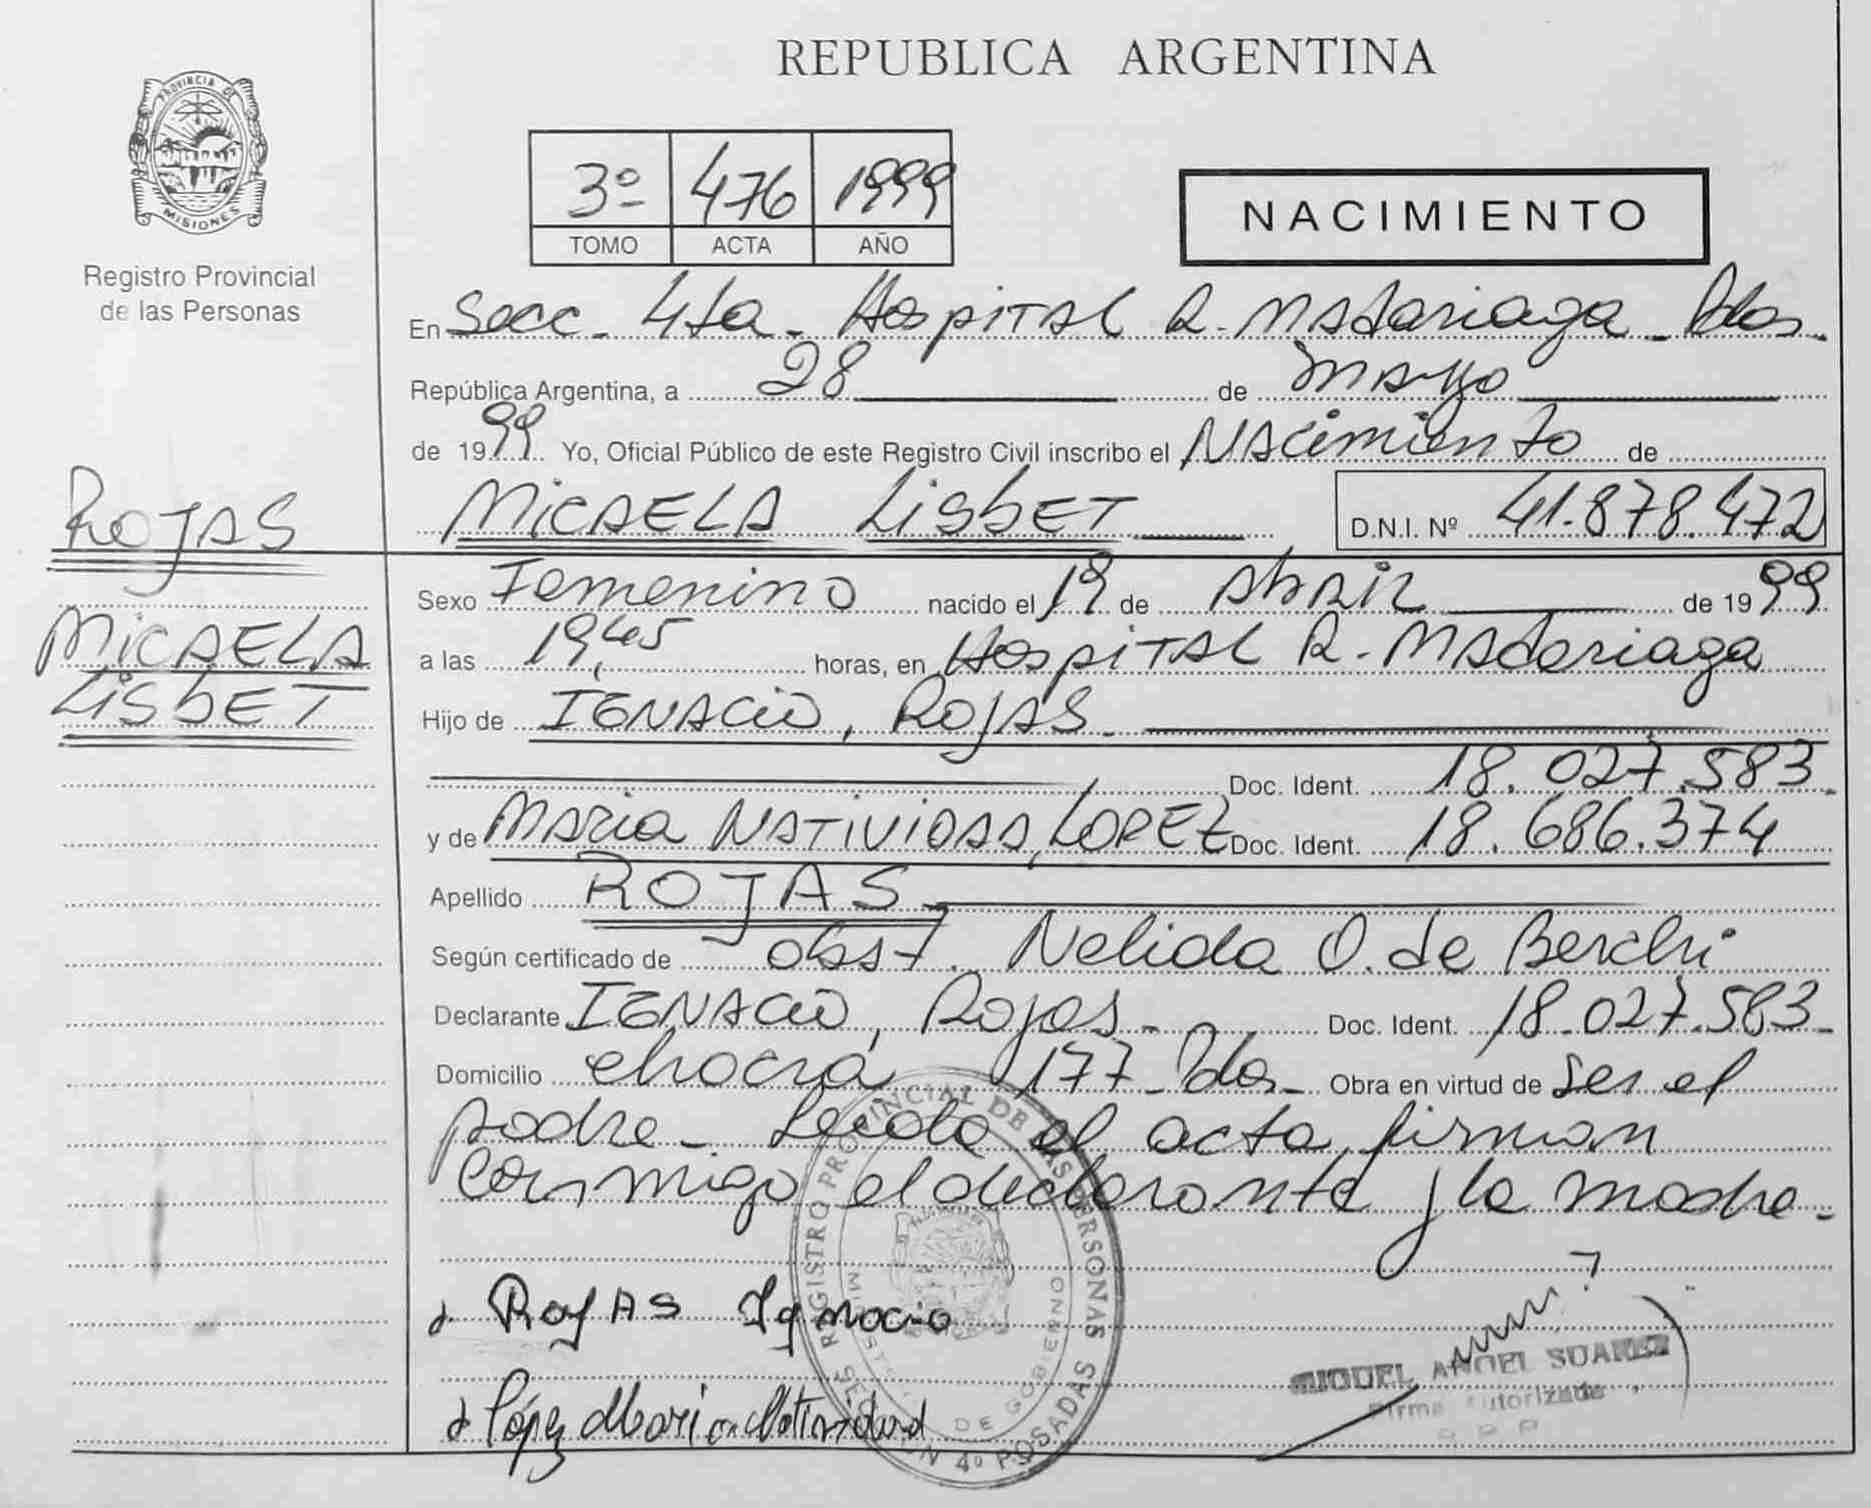 REPUBLICA ARGENTINA
PROVINCIA DE
MISIONES
Registro Provincial
de las Personas
3º 476 1999
TOMO ACTA AÑO
NACIMIENTO
En Secc. 4ta. Hospital R. Madariaga - Pdas.
República Argentina, a 28 de Mayo
de 1999 Yo, Oficial Público de este Registro Civil inscribo el Nacimiento de
MICAELA LisbET D.N.I. Nº 41.878.472
ROJAS
MICAELA
LisbET
Sexo Femenino nacido el 19 de Abril de 1999
a las 19,45 horas, en Hospital R. Madariaga
Hijo de IGNACIO, ROJAS
Doc. Ident. 18.027.583
y de Maria NATIVIDAD, LOPEZ Doc. Ident. 18.686.374
Apellido ROJAS
Según certificado de obst. Nelida O. de Berchi
Declarante IGNACIO, Rojas - Doc. Ident. 18.027.583
Domicilio chacra 177 - Pdas - Obra en virtud de ser el
padre - Leida el acta, firman
conmigo el declarante y la madre.
Rojas Ignacio
López Maria Natividad
MIGUEL ANGEL SUAREZ
Firma Autorizada
REGISTRO PROVINCIAL DE LAS PERSONAS
MINISTERIO DE GOBIERNO
SECCION 4º POSADAS